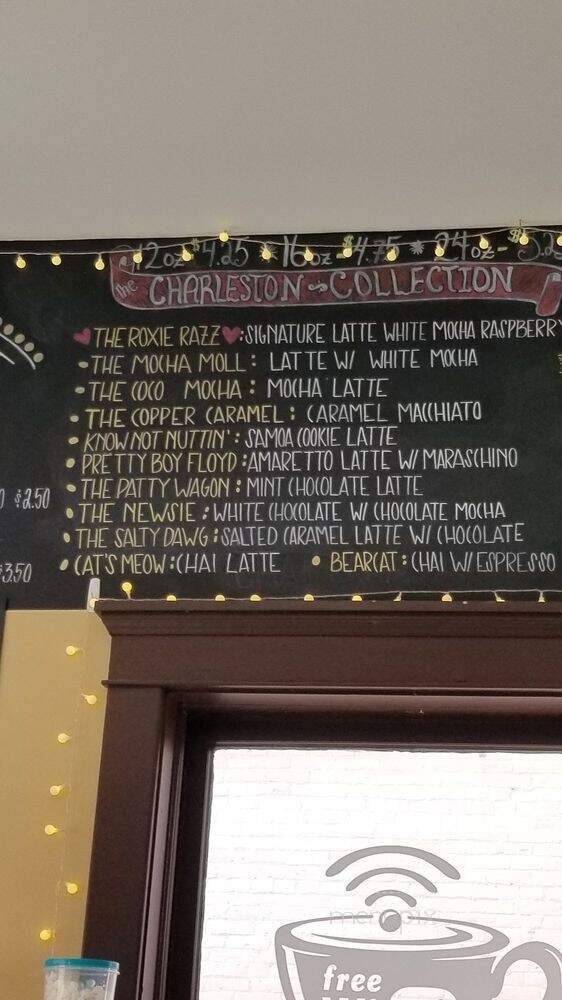 12oz $4.25 * 16oz - $4.75 * 24oz - $5.25
The CHARLESTON ~ COLLECTION
THE ROXIE RAZZ: SIGNATURE LATTE WHITE MOCHA RASPBERRY
• THE MOCHA MOLL: LATTE W/ WHITE MOCHA
• THE COCO MOCHA: MOCHA LATTE
• THE COPPER CARAMEL: CARAMEL MACCHIATO
• KNOW NOT NUTTIN': SAMOA COOKIE LATTE
• PRETTY BOY FLOYD: AMARETTO LATTE W/ MARASCHINO
• THE PATTY WAGON: MINT CHOCOLATE LATTE
$2.50
• THE NEWSIE: WHITE CHOCOLATE W/ CHOCOLATE MOCHA
• THE SALTY DAWG: SALTED CARAMEL LATTE W/ CHOCOLATE
$3.50
• CAT'S MEOW: CHAI LATTE • BEARCAT: CHAI W/ ESPRESSO
menupix
free